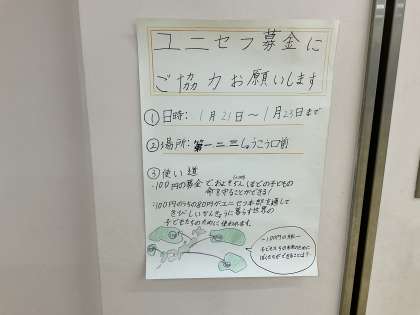 ユニセフ募金に
ご協力お願いします
①日時：1月21日～1月23日まで
②場所：第一二三しょうこう口前
③使い道
・100円の募金で およそ
ほどの子どもの
命を守ることができる！
・100円のうちの80円がユニセフ本部を通して
きびしいかんきょうに暮らす世界の
子どもたちのために使われます。
子どもたちの未来のために
ぼくたちができることは？